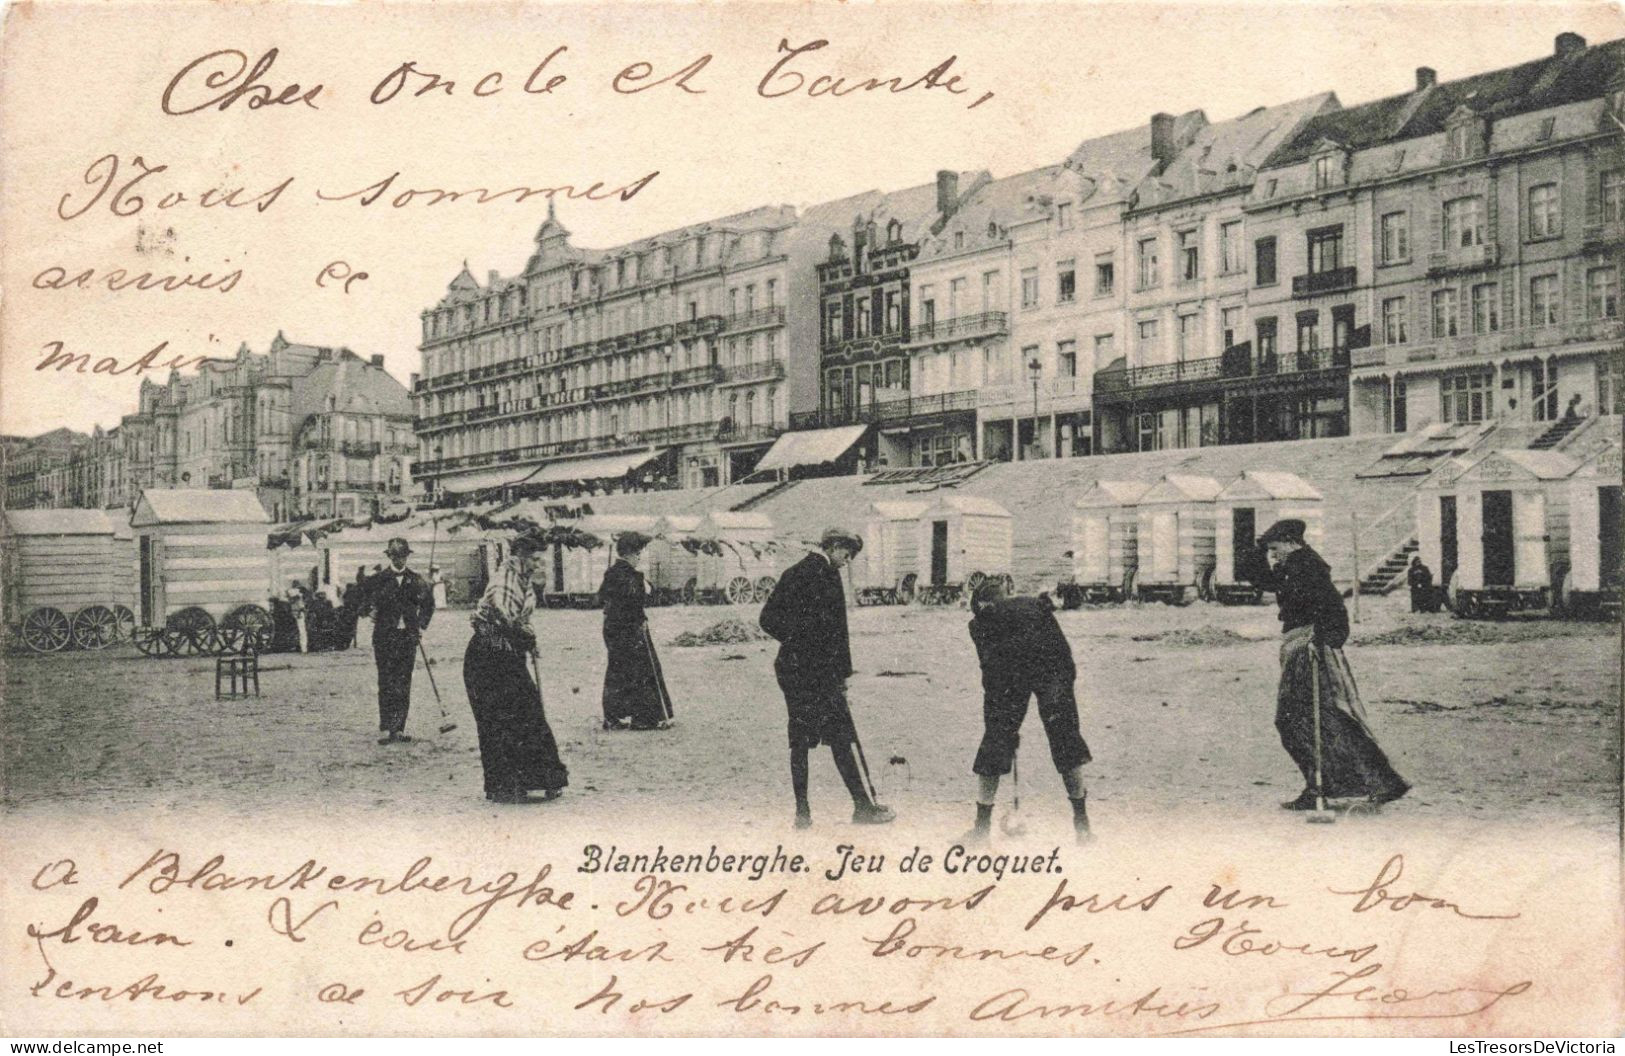 Cher Oncle et Tante,
Nous sommes
arrivés ce
matin
HOTEL DE L'OCEAN
Blankenberghe. Jeu de Croquet.
a Blankenberghe. Nous avons pris un bon
bain. & l'eau était très bonnes. Nous
rentrons ce soir nos bonnes Amitiés
delcampe.net
LesTresorsDeVictoria